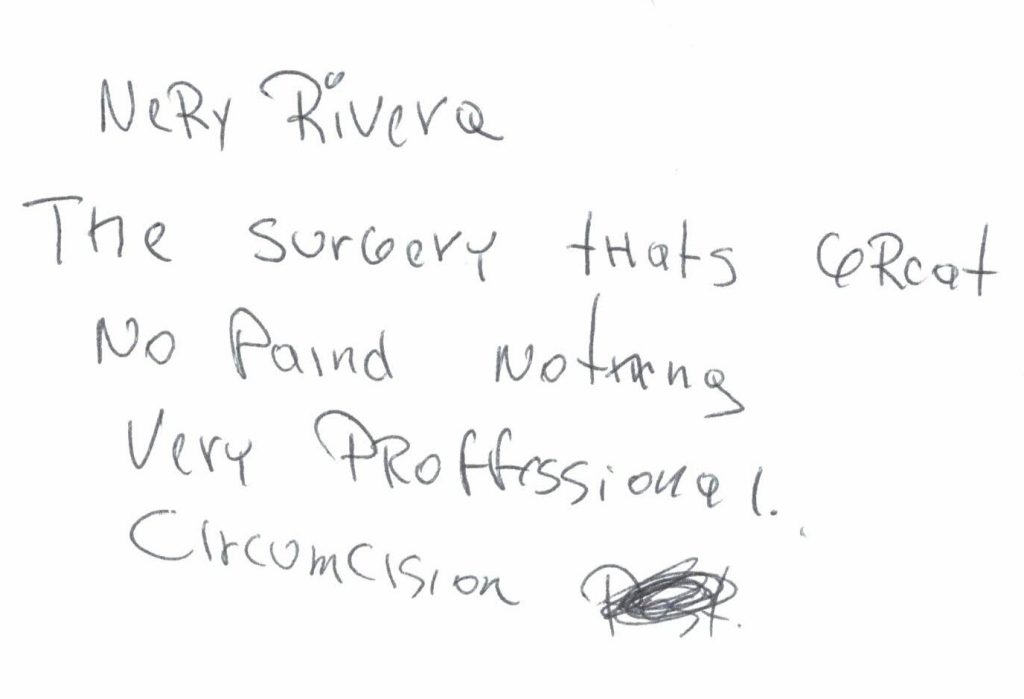 Nery Rivera
The surgery thats Great
No Paind Nothing
Very Proffessional.
Circomcision